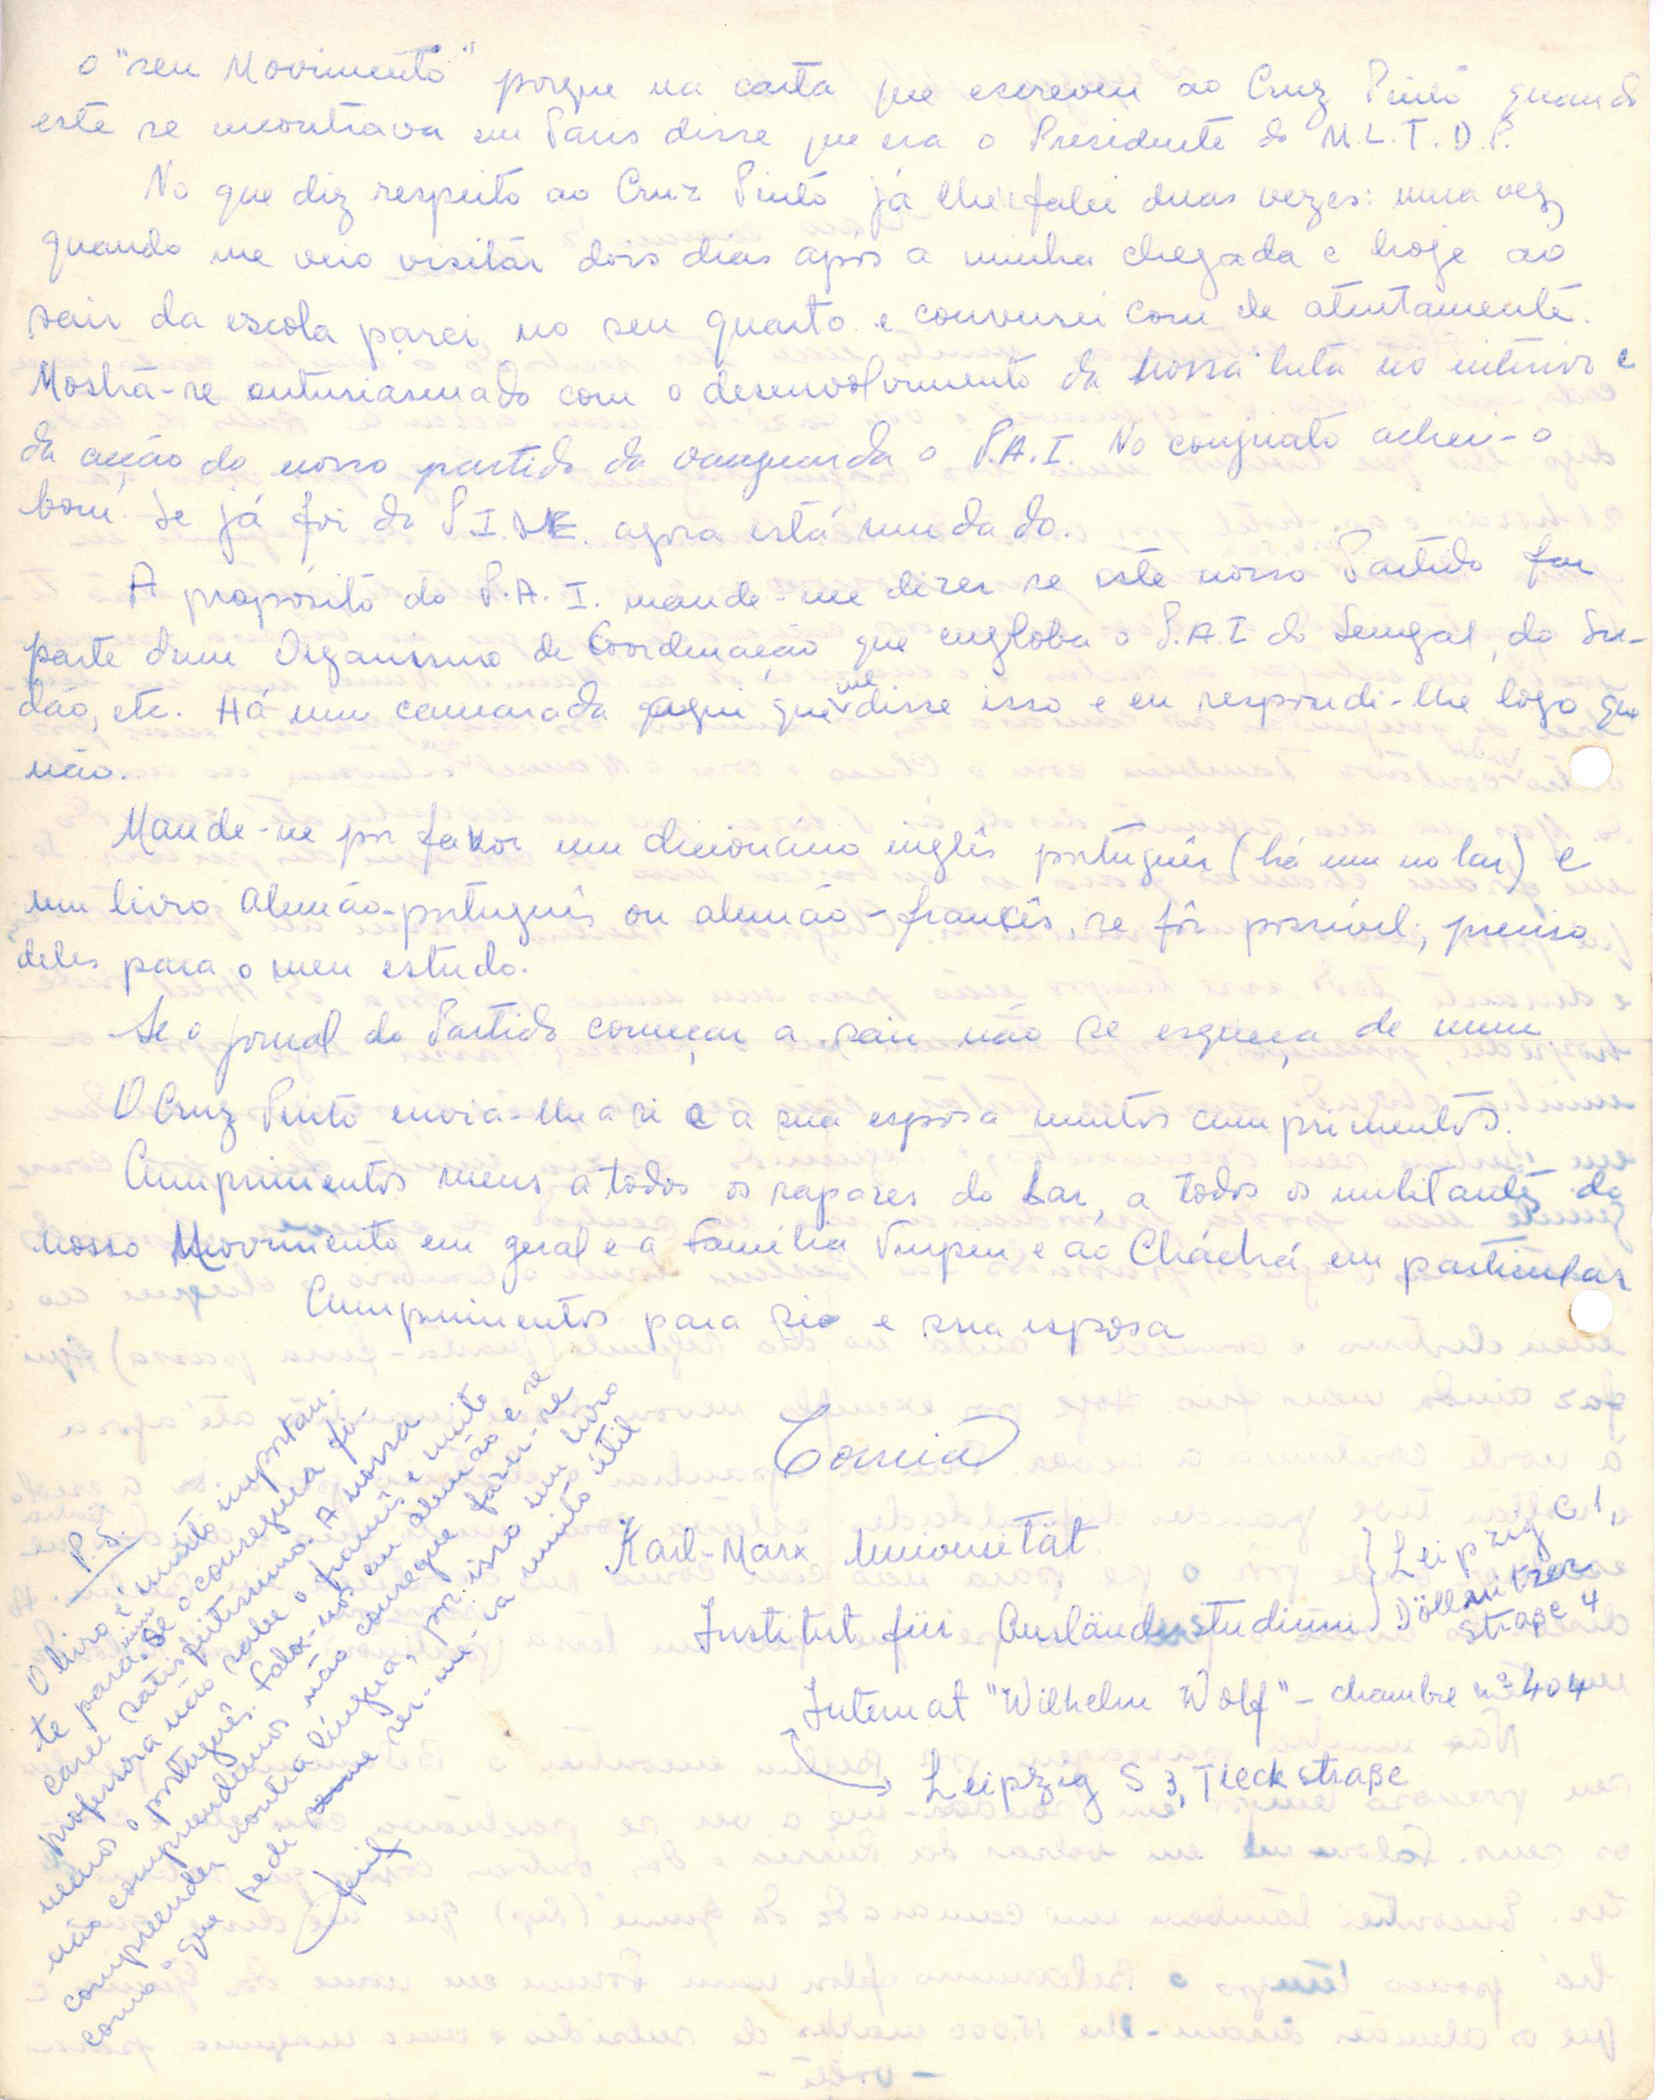 o "seu Movimento" porque na carta que escreveu ao Cruz Pinto quando
este se encontrava em Paris disse que era o Presidente do M.L.T.D.P.
No que diz respeito ao Cruz Pinto já lhe falei duas vezes: uma vez,
quando me veio visitar dois dias após a minha chegada e hoje ao
sair da escola parei no seu quarto e conversei com ele atentamente.
Mostra-se entusiasmado com o desenvolvimento da nossa luta no interior e
da acção do nosso partido da vanguarda o P.A.I. No conjunto achei-o
bom. Se já foi da P.I.D.E. agora está mudado.
A propósito do P.A.I. mande-me dizer se este nosso Partido faz
parte dum Organismo de Coordenação que engloba o P.A.I do Senegal, do Su-
dão, etc. Há um camarada aqui que me disse isso e eu respondi-lhe logo que
não.
Mande-me por favor um dicionário inglês português (há um no lar) e
um livro alemão-português ou alemão-francês, se fôr possível; preciso
deles para o meu estudo.
Se o jornal do Partido começar a sair não se esqueça de mim
O Cruz Pinto envia-lhe a si e a sua esposa muitos cumprimentos.
Cumprimentos meus a todos os rapazes do Lar, a todos os militantes do
nosso Movimento em geral e à Família Turpin e ao Cháchá em particular
Cumprimentos para si e sua esposa
Correia
Karl-Marx Universität
Institut für Ausländerstudium } Leipzig C1,
Döllnitzer
straße 4
Internat "Wilhelm Wolf" - chambre nº 404
Leipzig S 3, Tieckstraße
P.S.
O livro é muito importan-
te para mim. Se o conseguir fi-
carei satisfeitíssimo. A nossa
professora não sabe o francês e muito
menos o português. Fala-nos em alemão e se
não compreendemos não consegue fazer-se
compreender noutra língua, por isso um livro
como o que pedi ser-me-ia muito útil